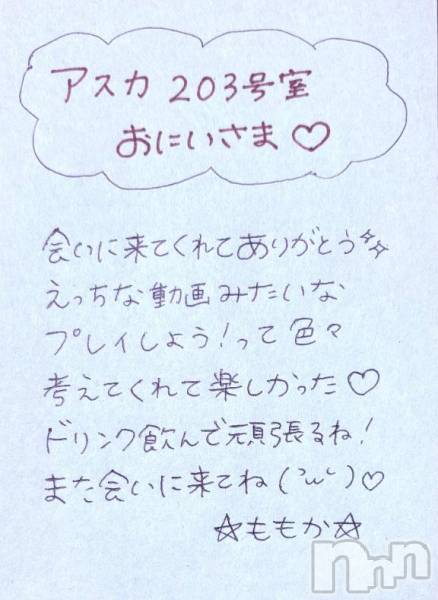 アスカ 203号室
おにいさま♡
会いに来てくれてありがとう✨
えっちな動画みたいな
プレイしよう!って色々
考えてくれて楽しかった♡
ドリンク飲んで頑張るね!
また会いに来てね('ω')♡
☆ももか☆
nnn